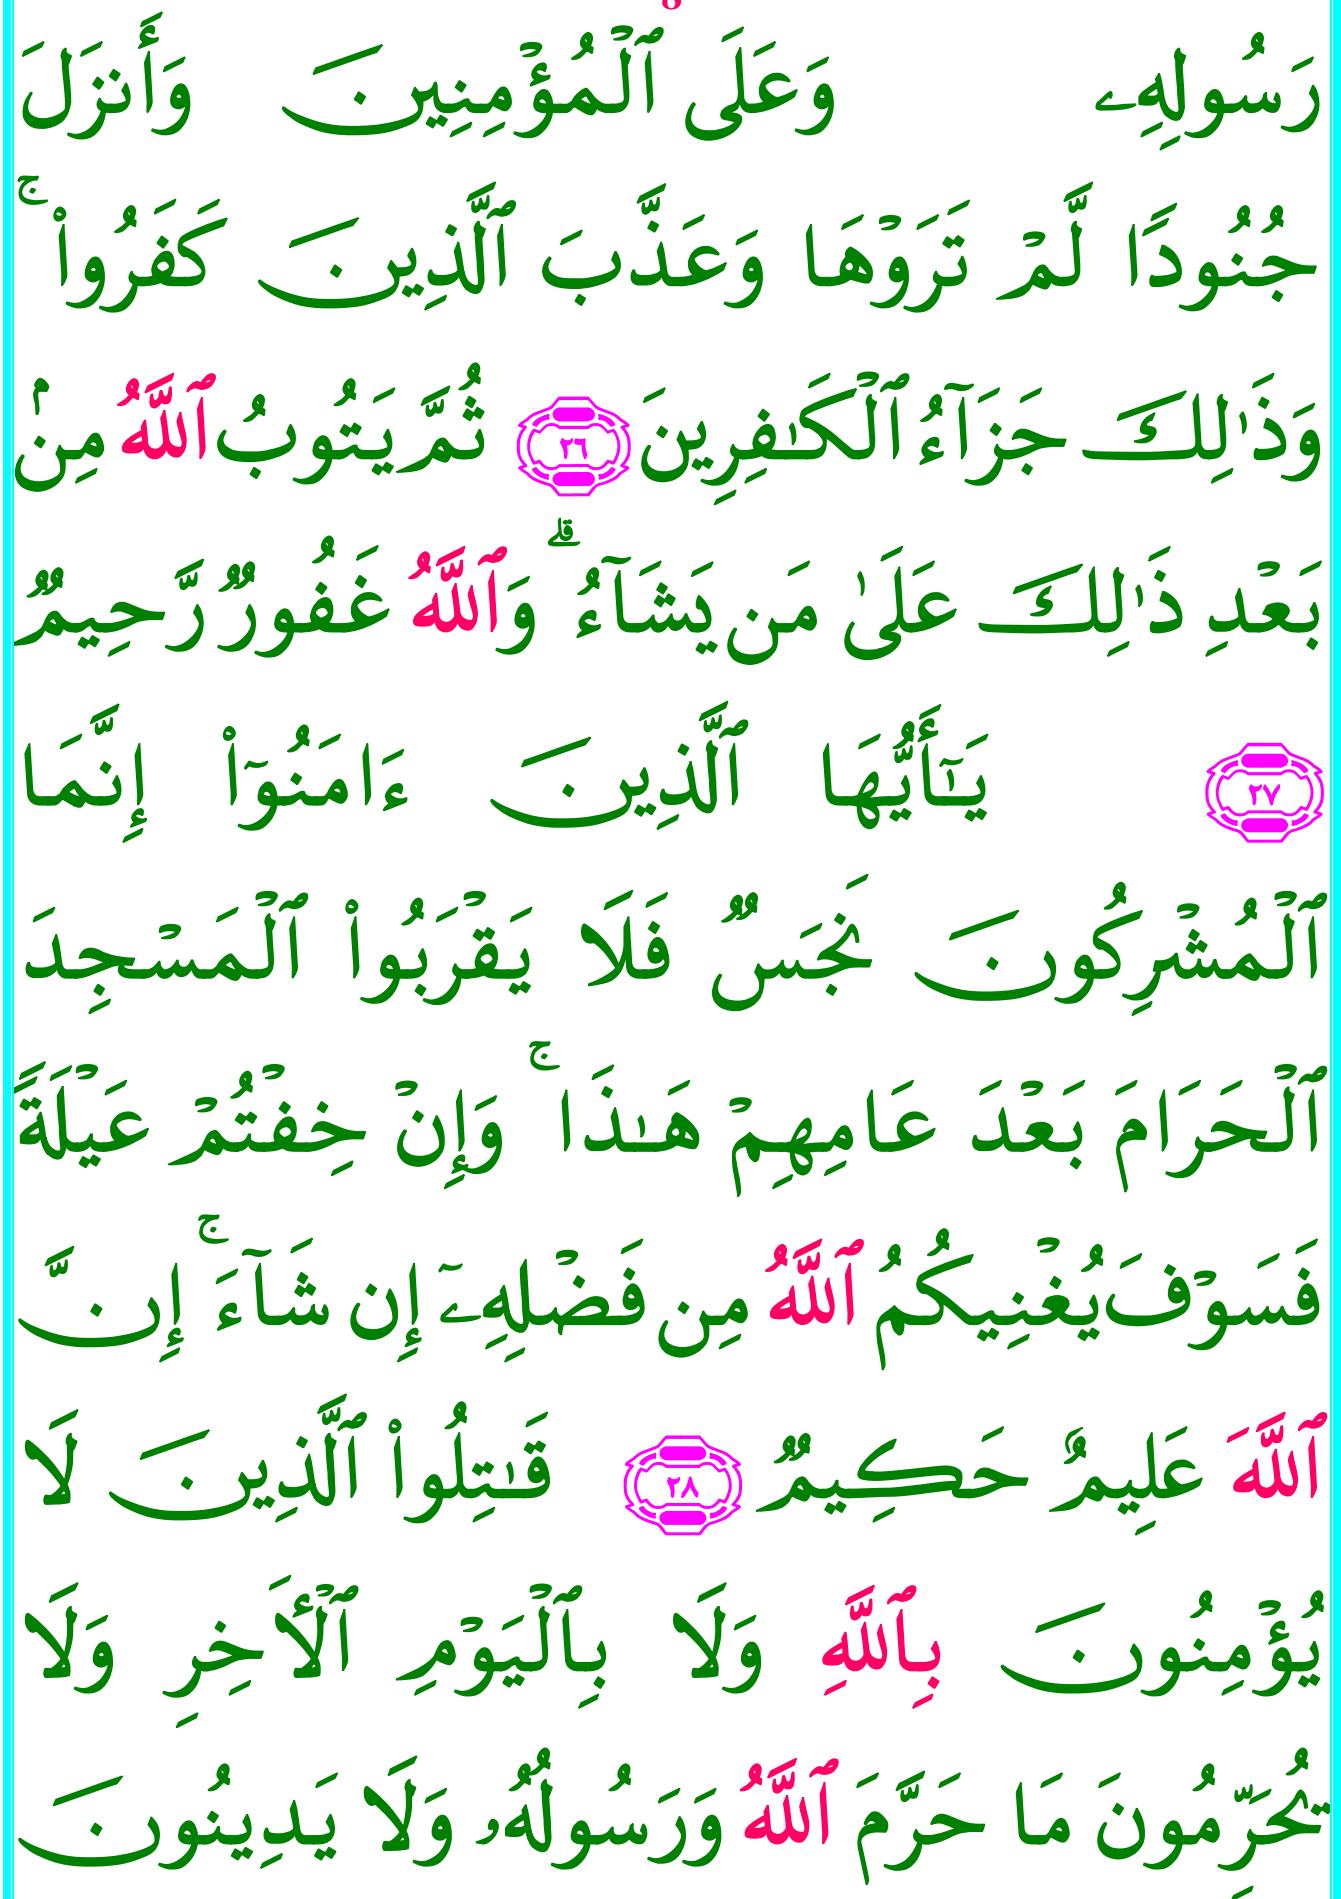 رَسُولِهِۦ وَعَلَى ٱلْمُؤْمِنِينَ وَأَنزَلَ
جُنُودًا لَّمْ تَرَوْهَا وَعَذَّبَ ٱلَّذِينَ كَفَرُوا۟ ۚ
وَذَٰلِكَ جَزَآءُ ٱلْكَـٰفِرِينَ ٢٦ ثُمَّ يَتُوبُ ٱللَّهُ مِنۢ
بَعْدِ ذَٰلِكَ عَلَىٰ مَن يَشَآءُ ۗ وَٱللَّهُ غَفُورٌ رَّحِيمٌ
٢٧ يَـٰٓأَيُّهَا ٱلَّذِينَ ءَامَنُوٓا۟ إِنَّمَا
ٱلْمُشْرِكُونَ نَجَسٌ فَلَا يَقْرَبُوا۟ ٱلْمَسْجِدَ
ٱلْحَرَامَ بَعْدَ عَامِهِمْ هَـٰذَا ۚ وَإِنْ خِفْتُمْ عَيْلَةً
فَسَوْفَ يُغْنِيكُمُ ٱللَّهُ مِن فَضْلِهِۦٓ إِن شَآءَ ۚ إِنَّ
ٱللَّهَ عَلِيمٌ حَكِيمٌ ٢٨ قَـٰتِلُوا۟ ٱلَّذِينَ لَا
يُؤْمِنُونَ بِٱللَّهِ وَلَا بِٱلْيَوْمِ ٱلْـَٔاخِرِ وَلَا
يُحَرِّمُونَ مَا حَرَّمَ ٱللَّهُ وَرَسُولُهُۥ وَلَا يَدِينُونَ